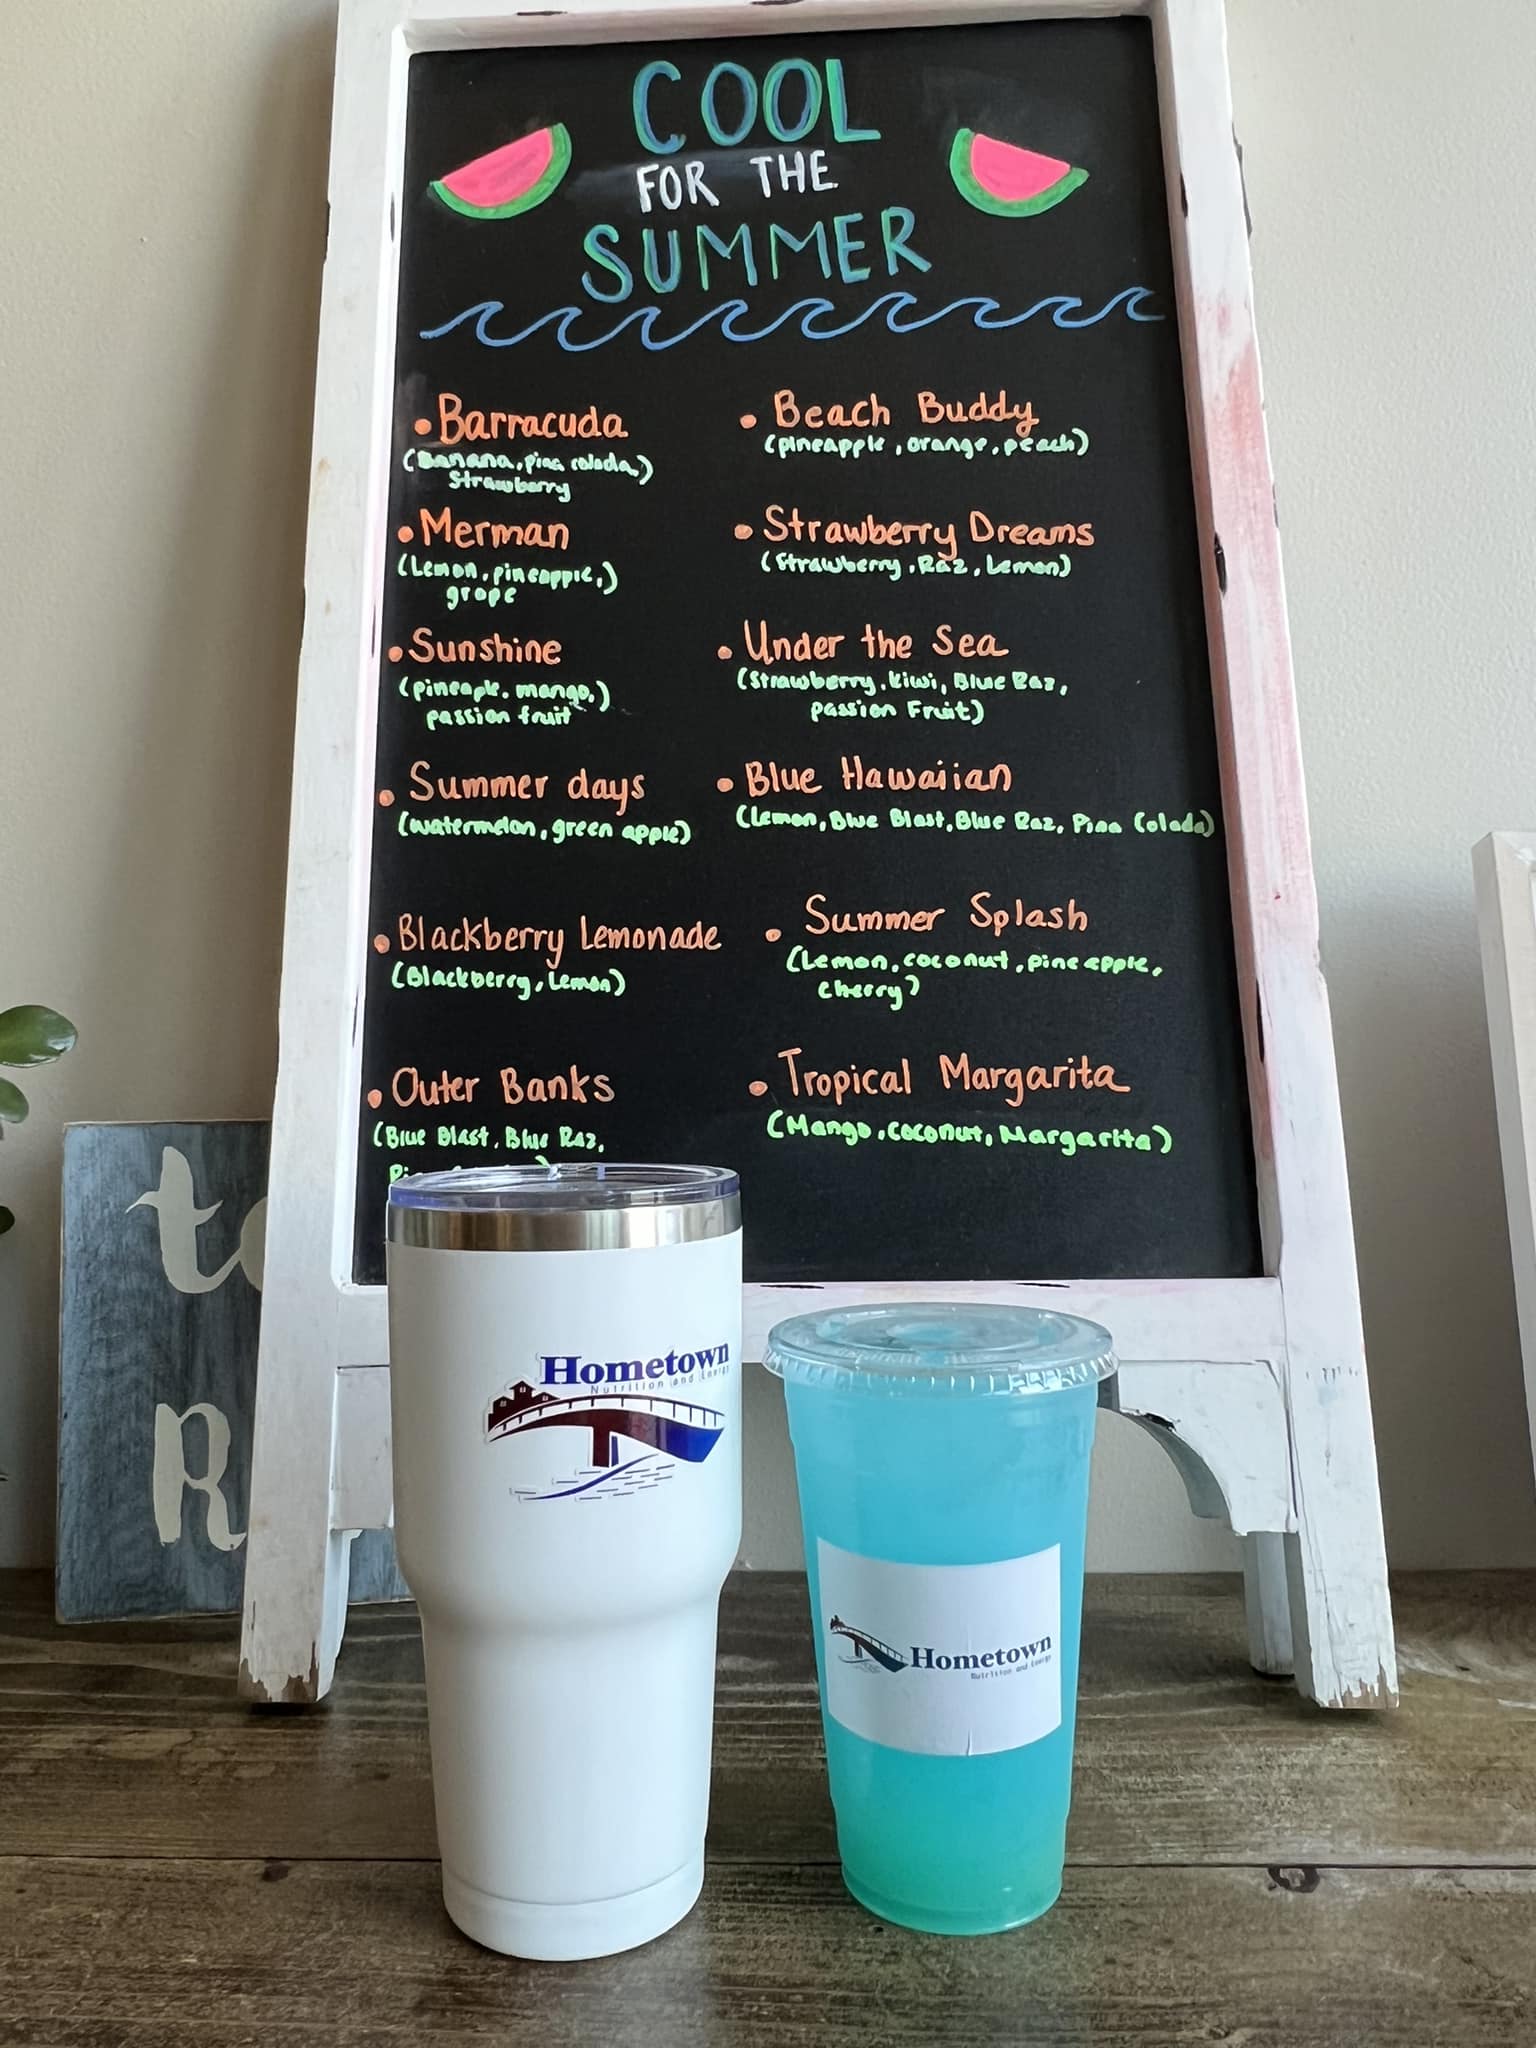 COOL
FOR THE
SUMMER
• Barracuda
(Banana, pina colada,)
Strawberry
• Merman
(Lemon, pineapple,)
grape
• Sunshine
(pineaple, mango,)
passion fruit
• Summer days
(watermelon, green apple)
• Blackberry Lemonade
(Blackberry, Lemon)
• Outer Banks
(Blue Blast, Blue Raz,
• Beach Buddy
(pineapple, orange, peach)
• Strawberry Dreams
(Strawberry, Raz, Lemon)
• Under the Sea
(Strawberry, kiwi, Blue Raz,
passion Fruit)
• Blue Hawaiian
(Lemon, Blue Blast, Blue Raz, Pina Colada)
• Summer Splash
(Lemon, coconut, pineapple,
cherry)
• Tropical Margarita
(Mango, coconut, Margarita)
Hometown
Nutrition and Energy
Hometown
Nutrition and Energy